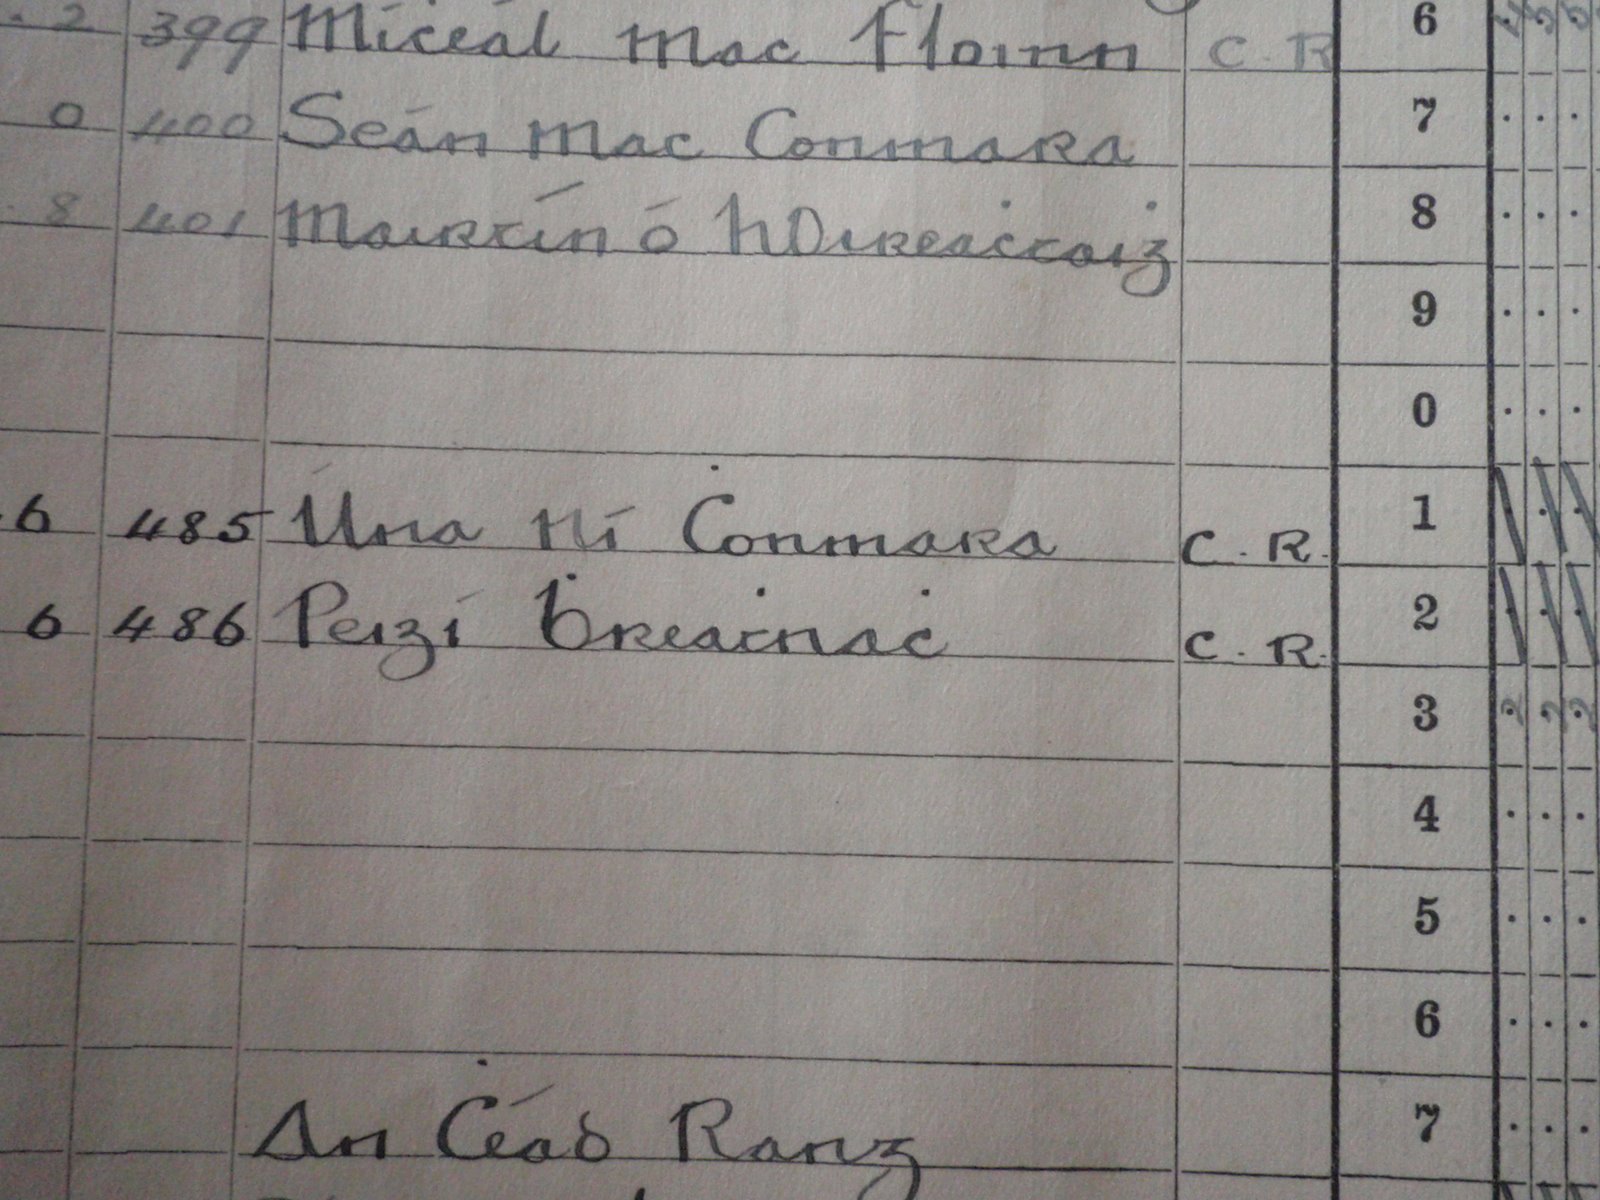 2 399 Mícéal Mac Floinn C. R 6
0 400 Seán Mac Conmara 7
8 401 Mairtín Ó hOireaċtaiġ 8
9
0
6 485 Úna Ní Ċonmara C. R. 1
6 486 Peigí Ḃreaṫnaċ C. R. 2
3
4
5
6
An Ċéad Rang 7